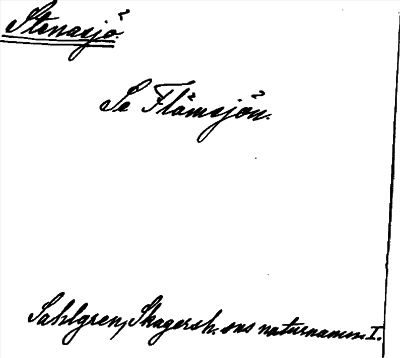 Stenasjö.
Se Flämsjön.
Sahlgren, Skagersh. sns naturnamn I.